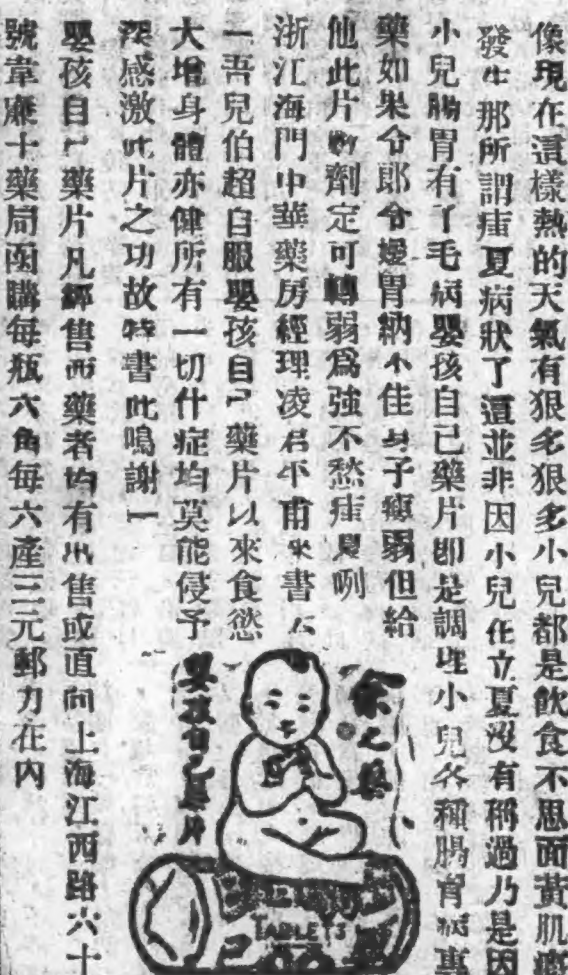 像現在這樣熱的天氣有狠多狠多小兒都是飲食不思面黃肌瘦
發生那所謂疰夏病狀了這並非因小兒在立夏沒有稱過乃是因
小兒腸胃有了毛病嬰孩自己藥片卽是調理小兒各種腸胃病專
藥如果令郎令嬡胃納不佳身子瘦弱但給
他此片數劑定可轉弱爲強不愁疰夏咧
浙江海門中華藥房經理凌君平甫來書云
「吾兒伯超自服嬰孩自己藥片以來食慾
大增身體亦健所有一切什症均莫能侵予
深感激此片之功故特書此鳴謝」
嬰孩自己藥片凡經售西藥者均有出售或直向上海江西路六十
號韋廉士藥局函購每瓶六角每六產三元郵力在內
余之藥
嬰孩自己藥片
TABLETS